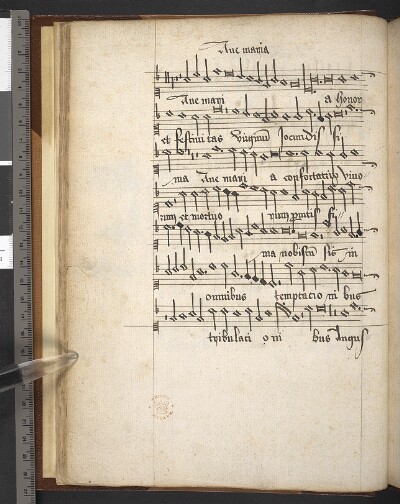 Aue maria
Aue mari a honor
et festiuitas virginū Jocundis si
ma Aue mari a consortatiuo viuo
rum et mortuo rum gentis si
ma nobiscū sis in
omnibus temptacio ni bus
tribulati o ni bus Angus